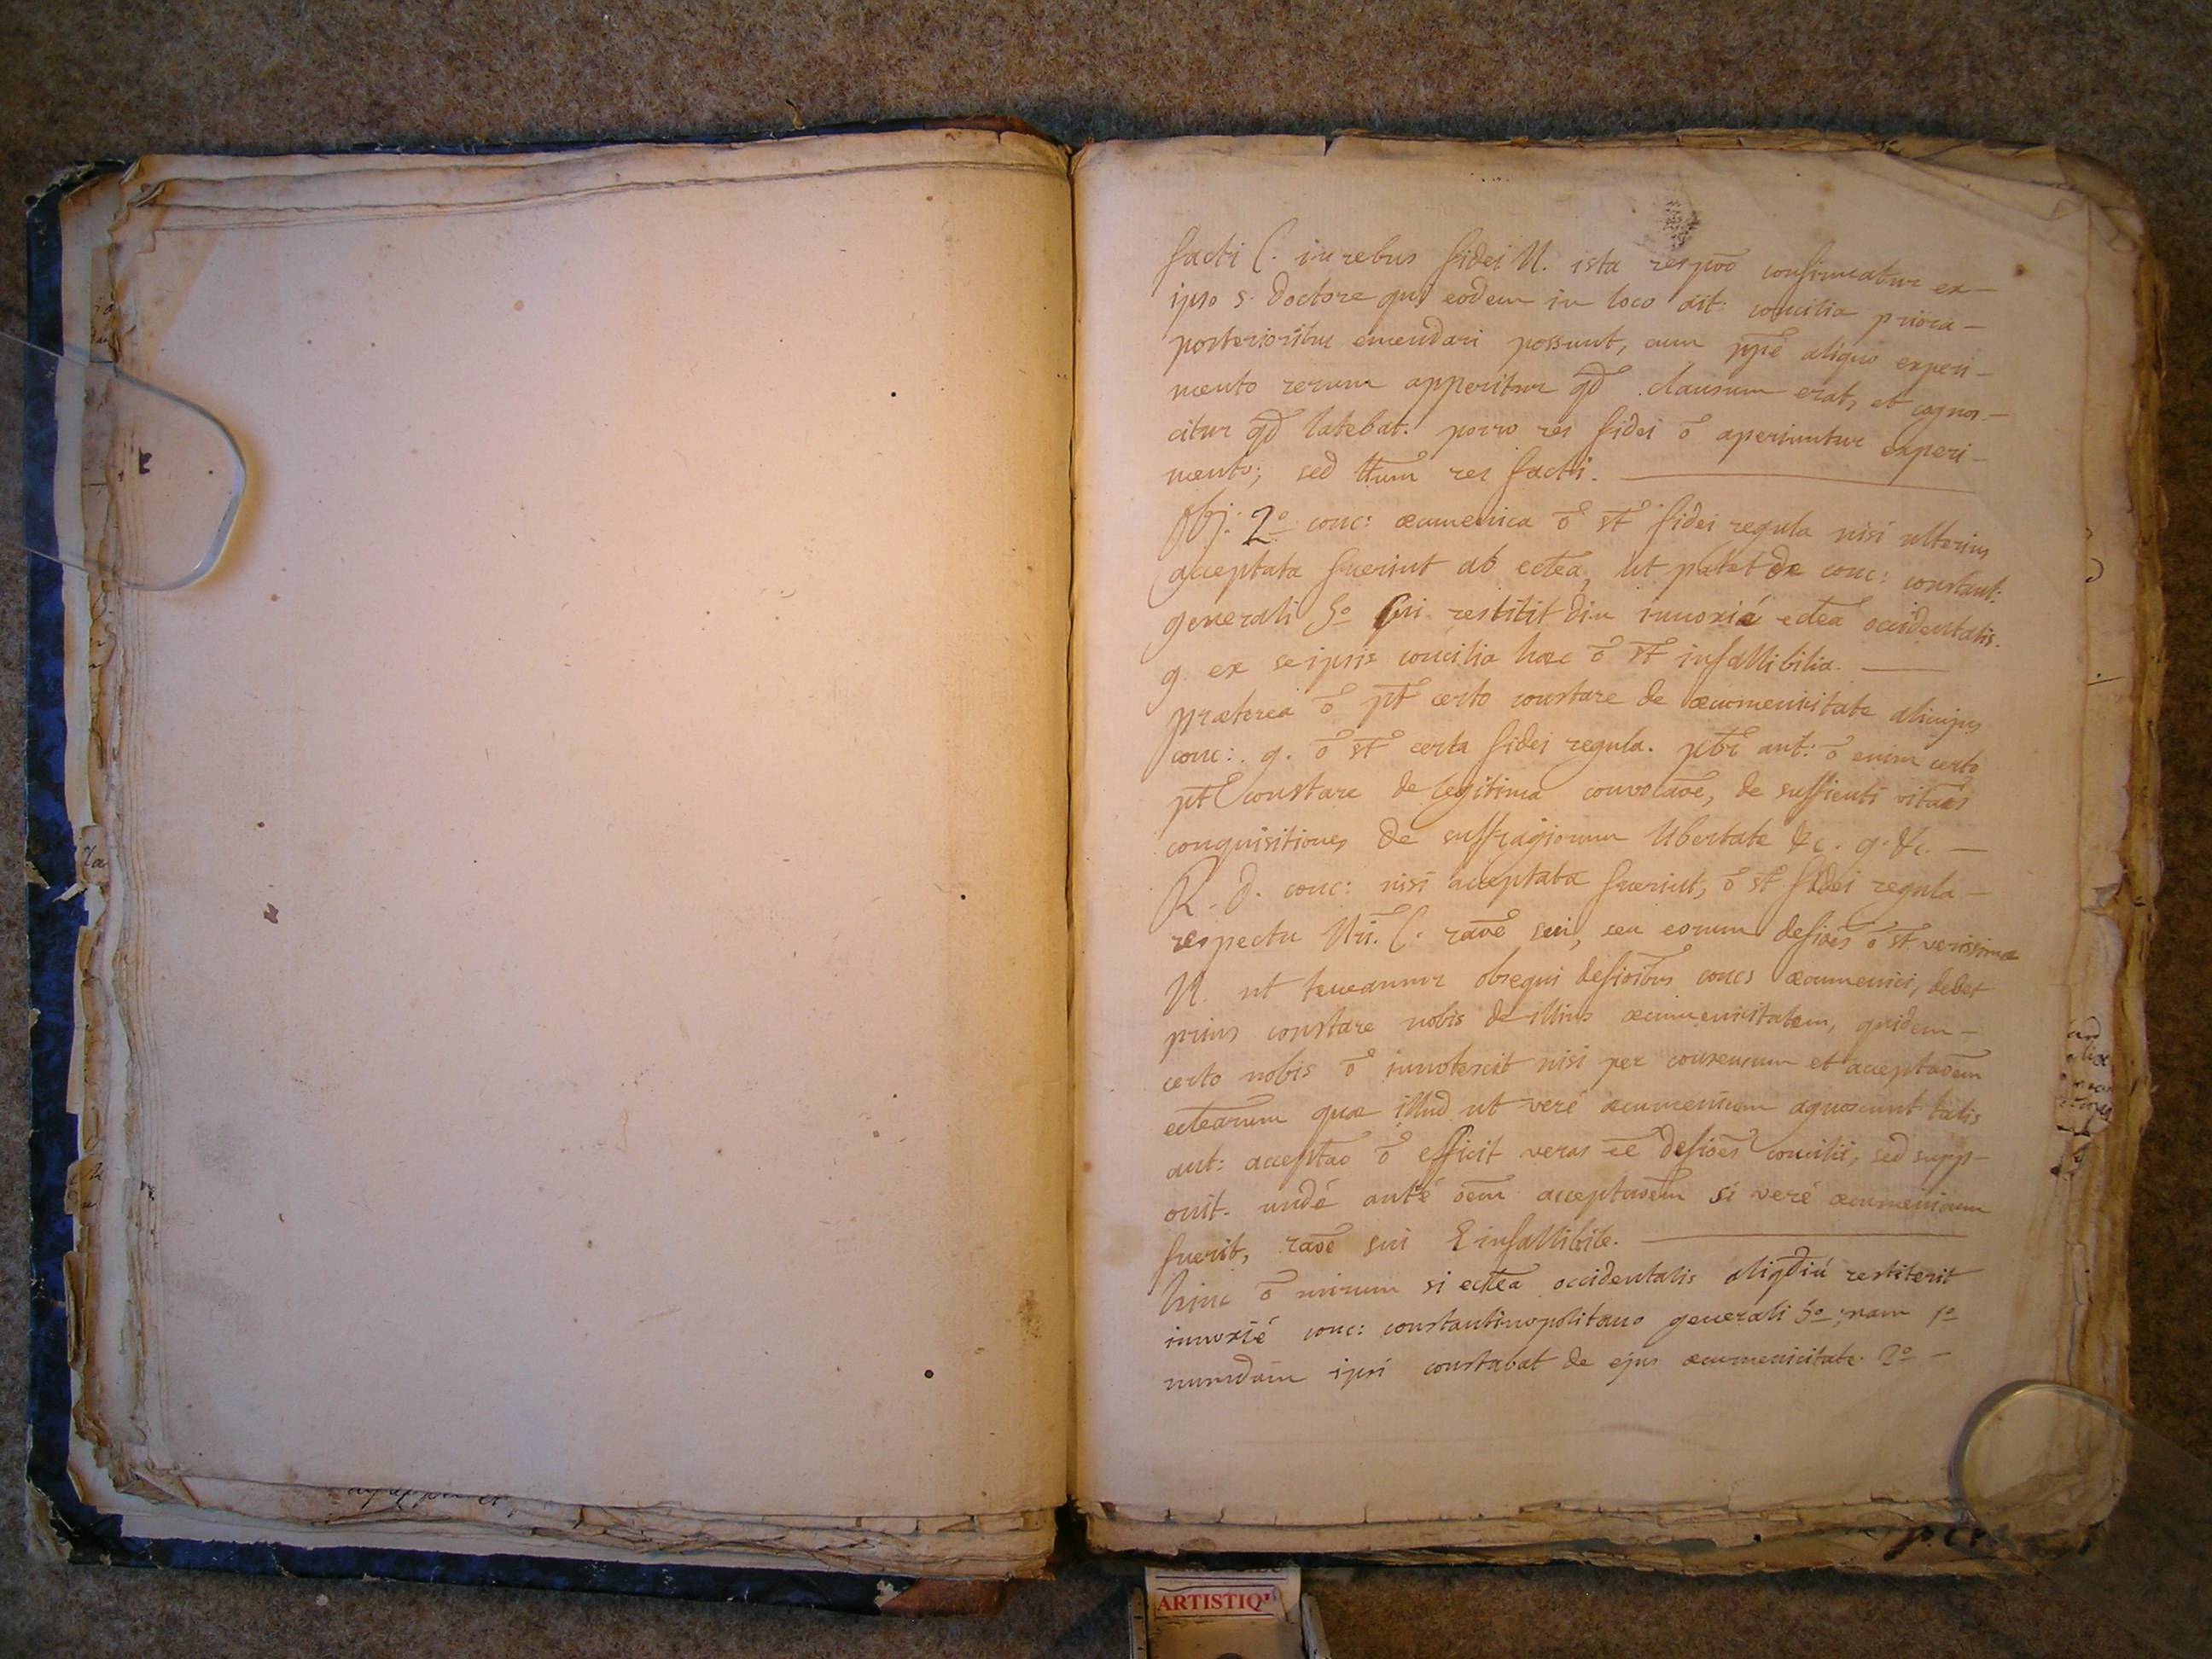 facti C. in rebus fidei N. ista respõõ confirmatur ex-
ipso s. Doctore qui eodem in loco ait: concilia priora-
posterioribus emendari possunt, cum aliquo experi-
mento rerum apperitur qđ clausum erat, et cognos-
citur qđ latebat. porro res fidei õ aperiuntur experi-
mento; sed ttum res facti.
Obj: 2º conc: œcumenica õ st̄ fidei regula nisi ulterius
acceptata fuerint ab ectea, ut patet de conc: constant:
generali 5º cui restitit diu innoxié ectea occidentalis.
g. ex se ipsis concilia hæc õ st̄ infallibilia.
præterea õ pt̄ certo constare de œcumenicitate alicujus
conc: g. õ st̄ certa fidei regula. pbr ant: õ enim certo
pt̄ constare de legitima convocaõe, de sufficienti
conquisitione, de suffragiorum libertate &c. g. &c.-
R. D. conc: nisi acceptata fuerint, õ st̄ fidei regula-
respectu Nri. C. raõe sui, seu eorum defiões õ st̄ verissimæ
N. ut teneamur obsequi defioibus concs œcumenici, debet
prius constare nobis de illius œcumenicitatem, quidem-
certo nobis õ innotescit nisi per consensum et acceptaõem
ectearum quæ illud ut veré œcumenicum agnoscunt talis
aut: acceptaõ õ efficit veras ēē defiões concilii, sed supp-
onit. undé anté oem acceptaõem si veré œcumenicum
fuerit, raõe sui infallibile.
hinc õ mirum si ectea occidentalis aliqdiu restiterit
innoxié conc: constantinopolitano generali 5º; nam 1º
numdum ipsi constabat de ejus œcumenicitate. 2º -
ARTISTIQ